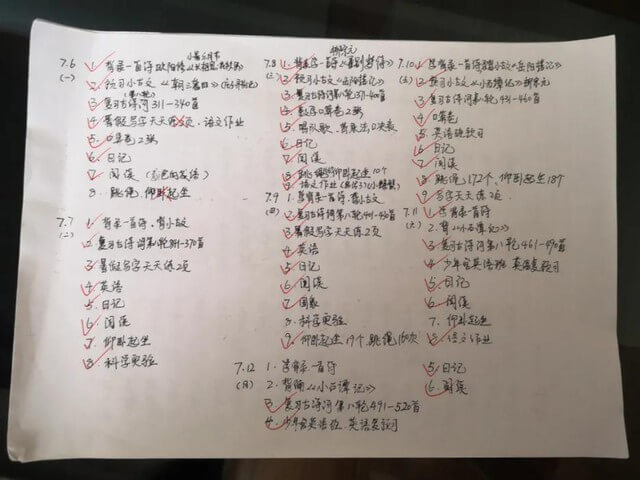 7.6
(一)
1. 背录一首诗
2. 预习小古文
3. 复习古诗词 311-340首
4. 暑假写字天天练2页、语文作业
5. 口算卷2张
6. 日记
7. 阅读
8. 跳绳、仰卧起坐
7.7
(二)
1. 背录一首诗、背小古文
2. 复习古诗词第八轮341-370首
3. 暑假写字天天练2项
4. 英语
5. 日记
6. 阅读
7. 仰卧起坐
8. 科学实验
7.8
(三)
2. 预习小古文《岳阳楼记》
3. 复习古诗词第八轮371-400首
4. 口算卷2张
6. 日记
7. 阅读
8. 跳绳 仰卧起坐10个
7.9
(四)
1. 背录一首诗、背小古文
2. 复习古诗词第八轮401-430首
3. 暑假写字天天练2页
4. 英语
5. 日记
6. 阅读
7. 国象
8. 科学实验
9. 仰卧起坐19个、跳绳160次
7.10
(五)
1. 背录一首诗 背小古文《岳阳楼记》
2. 预习小古文《小石潭记》
3. 复习古诗词第八轮431-460首
4. 口算卷
5. 英语晚预习
6. 日记
7. 阅读
8. 跳绳172个、仰卧起坐18个
9. 写字天天练2项
7.11
1. 背录一首诗
2. 背《小石潭记》
3. 复习古诗词第八轮461-490首
4. 少年宫英语班 英语复预习
5. 日记
6. 阅读
7. 仰卧起坐
8. 语文作业
7.12
(日)
1. 背录一首诗
2. 背诵《小石潭记》
3. 复习古诗词第八轮491-520首
4. 少年宫英语班 英语复预习
5. 日记
6. 阅读